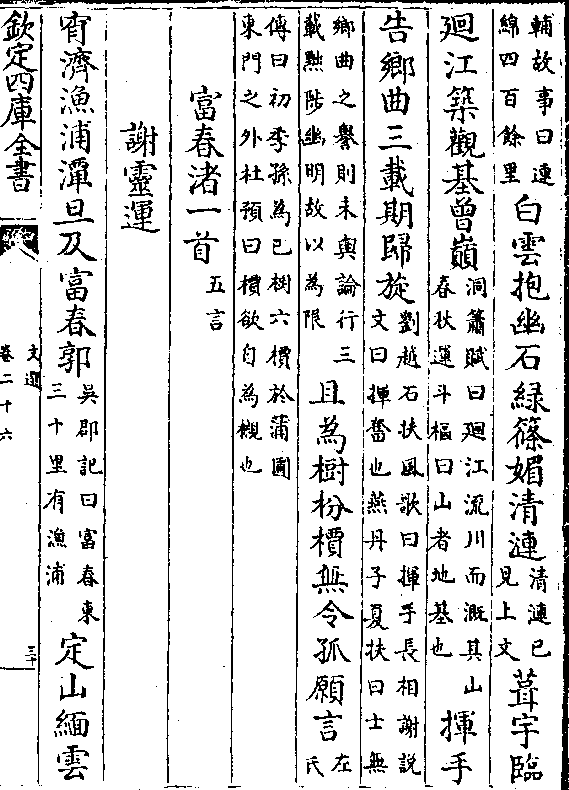 輔故事曰連
綿四百餘里
白雲抱幽石緑篠媚清漣
清漣已
見上文
葺宇臨
廻江築觀基曾巔
洞簫賦曰廻江流川而溉其山
春秋運斗樞曰山者地基也
揮手
告鄉曲三載期歸旋
劉越石扶風歌曰揮手長相謝說
文曰揮奮也燕丹子夏扶曰士無
鄉曲之譽則未與論行三
載黜陟幽明故以為限
且為樹枌檟無令孤願言
左
氏
傳曰初季孫為已樹六檟於蒲圃
東門之外杜預曰檟欲自為櫬也
富春渚一首
五言
謝靈運
宵濟漁浦潭旦及富春郭
吳郡記曰富春東
三十里有漁浦
定山緬雲
欽定四庫全書
文選
卷二十六
三十